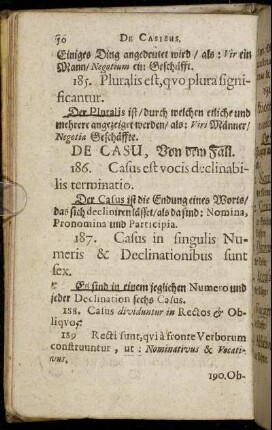 50 DE CASIBUS.
Einiges Ding angedeutet wird / als: Vir ein
Mann / Negotium ein Geschäfft.
185. Pluralis est, qvo plura signi-
ficantur.
Der Pluralis ist / durch welchen etliche und
mehrere angezeiget werden / als: Viri Männer /
Negotia Geschäffte.
DE CASU, Von dem Fall.
186. Casus est vocis declinabi-
lis terminatio.
Der Casus ist die Endung eines Worts /
das sich decliniren lässet / als da sind: Nomina,
Pronomina und Participia.
187. Casus in singulis Nu-
meris & Declinationibus sunt
sex.
Es sind in einem jeglichen Numero und
jeder Declination sechs Casus.
188. Casus dividuntur in Rectos & Ob-
liqvos.
189 Recti sunt, qvi à fronte Verborum
construuntur, ut: Nominativus & Vocati-
vus.
190. Ob-